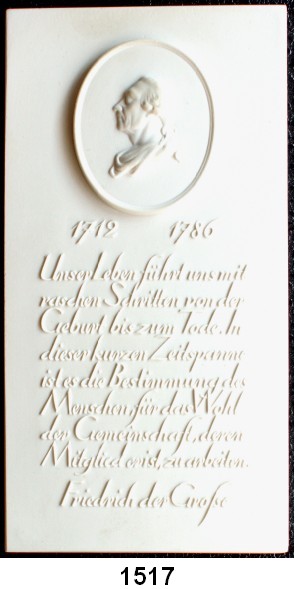 1712 1786
Unser Leben führt uns mit
raschen Schritten von der
Geburt bis zum Tode. In
dieser kurzen Zeitspanne
ist es die Bestimmung des
Menschen, für das Wohl
der Gemeinschaft, deren
Mitglied er ist, zu arbeiten.
Friedrich der Große
1517